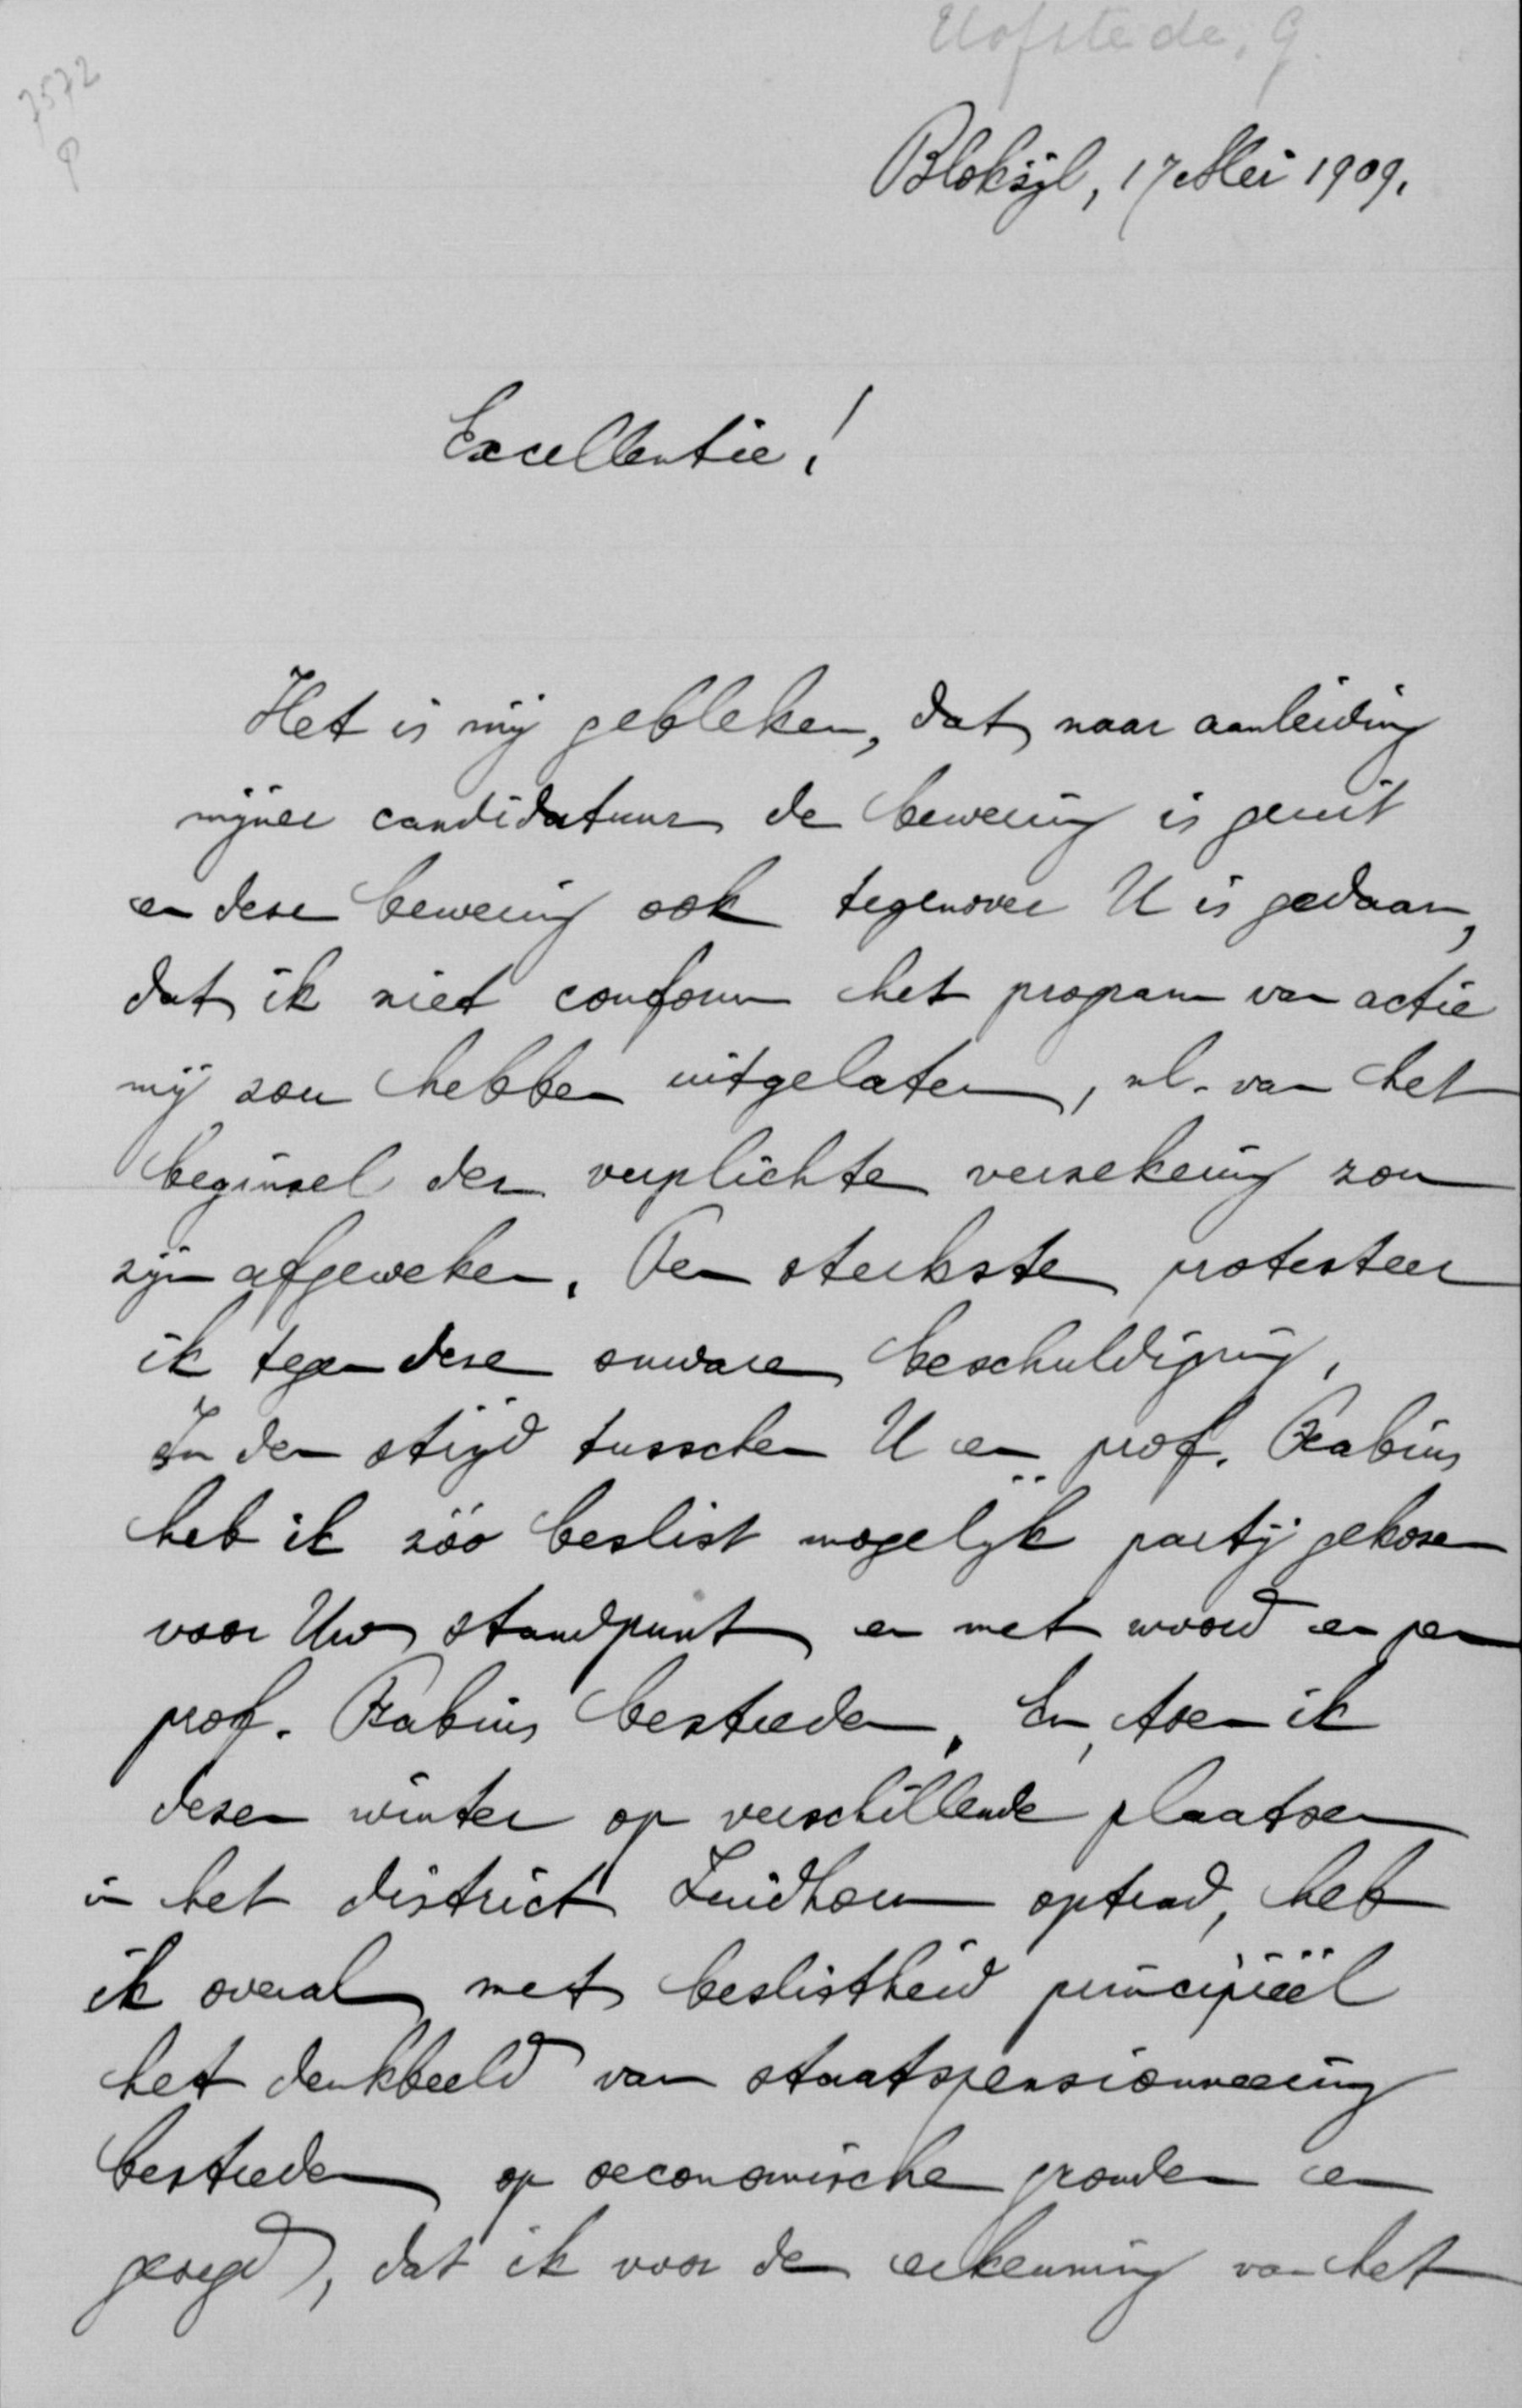 Hofstede, G.
7572
P
Blokzijl, 17 Mei 1909.
Excellentie!
Het is mij gebleken, dat naar aanleiding
mijner candidatuur de bewering is geuit
en deze bewering ook tegenover U is gedaan,
dat ik niet conform het program van actie
mij zou hebben uitgelaten, nl. van het
beginsel der verplichte verzekering zou
zijn afgeweken. Ten sterkste protesteer
ik tegen deze onware beschuldiging.
In den strijd tusschen U en prof. Fabius
heb ik zóó beslist mogelijk partij gekozen
voor Uw standpunt en met woord en pen
prof. Fabius bestreden. En, toen ik
dezen winter op verschillende plaatsen
in het district Zuidhorn optrad, heb
ik overal met beslistheid principiëel
het denkbeeld van staatspensionneering
bestreden op oeconomische gronden en
gezegd, dat ik voor de erkenning van het